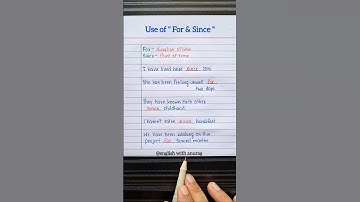 Use of " For & Since "
For = Duration of time
Since = Point of time
I have lived here since 2015
She has been feeling unwell for
two days
They have known each other
since childhood
I haven't eaten since breakfast
We have been working on this
project for several months
@english with anurag